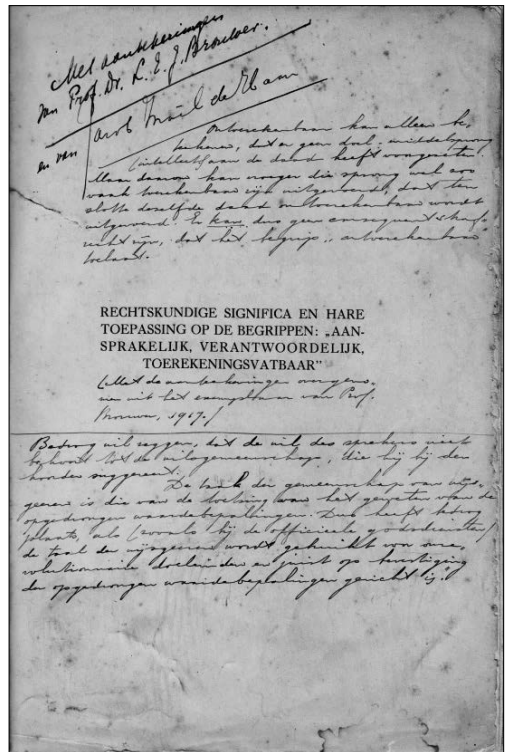 Met aanteekeningen
van Prof. Dr. L. E. J. Brouwer.
en van Jacob Israël de Haan
Ontoerekenbaar kan alleen be-
teekenen, dat er geen doel-middelsprong
(intellect) aan de daad heeft voorgezeten.
Maar daarom kan vroeger die sprong wel zoo
vaak toerekenbaar zijn uitgevoerd, dat ten
slotte dezelfde daad ontoerekenbaar wordt
uitgevoerd. Er kan dus geen consequent straf-
recht zijn, dat het begrip „ontoerekenbaar"
toelaat.
RECHTSKUNDIGE SIGNIFICA EN HARE
TOEPASSING OP DE BEGRIPPEN: „AAN-
SPRAKELIJK, VERANTWOORDELIJK,
TOEREKENINGSVATBAAR"
(Met de aanteekeningen overgeno-
men uit het exemplaar van Prof.
Brouwer, 1917.)
Bedrog wil zeggen, dat de wil des sprekers niet
behoort tot de wilsgemeenschap, die hij bij den
hoorder suggereert.
De taal der gemeenschap van
is die van de van het geweten van de
opgedrongen waardebepalingen. Dus heeft bedrog
plaats, als (zooals bij de officieele godsdiensten)
de taal der wordt gebruikt voor
doeleinden en juist op bevestiging
der opgedrongen waardebepalingen gericht is.